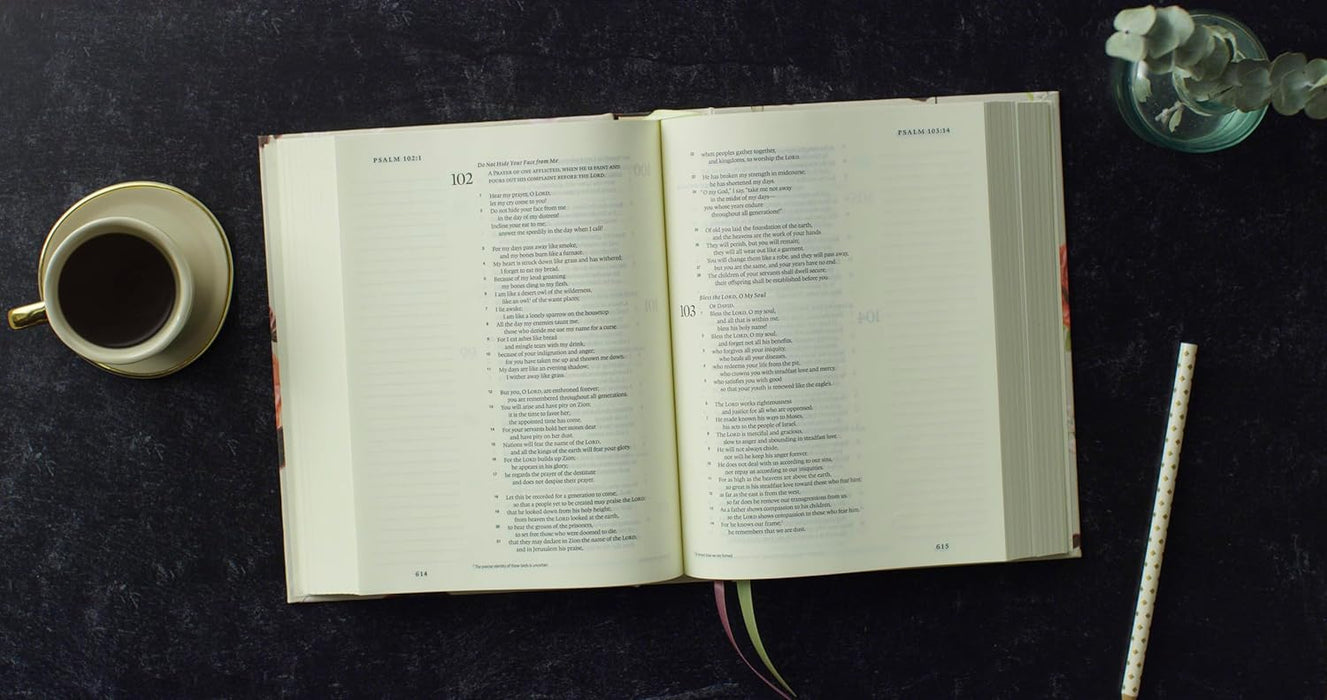 PSALM 102:1
Do Not Hide Your Face from Me
102 A PRAYER OF ONE AFFLICTED, WHEN HE IS FAINT AND
POURS OUT HIS COMPLAINT BEFORE THE LORD.
1 Hear my prayer, O LORD;
let my cry come to you!
2 Do not hide your face from me
in the day of my distress!
Incline your ear to me;
answer me speedily in the day when I call!
3 For my days pass away like smoke,
and my bones burn like a furnace.
4 My heart is struck down like grass and has withered;
I forget to eat my bread.
5 Because of my loud groaning
my bones cling to my flesh.
6 I am like a desert owl of the wilderness,
like an owl of the waste places;
7 I lie awake;
I am like a lonely sparrow on the housetop.
8 All the day my enemies taunt me;
those who deride me use my name for a curse.
9 For I eat ashes like bread
and mingle tears with my drink,
10 because of your indignation and anger;
for you have taken me up and thrown me down.
11 My days are like an evening shadow;
I wither away like grass.
12 But you, O LORD, are enthroned forever;
you are remembered throughout all generations.
13 You will arise and have pity on Zion;
it is the time to favor her;
the appointed time has come.
14 For your servants hold her stones dear
and have pity on her dust.
15 Nations will fear the name of the LORD,
and all the kings of the earth will fear your glory.
16 For the LORD builds up Zion;
he appears in his glory;
17 he regards the prayer of the destitute
and does not despise their prayer.
18 Let this be recorded for a generation to come,
so that a people yet to be created may praise the LORD:
19 that he looked down from his holy height;
from heaven the LORD looked at the earth,
20 to hear the groans of the prisoners,
to set free those who were doomed to die,
21 that they may declare in Zion the name of the LORD,
and in Jerusalem his praise,
The precise identity of these birds is uncertain
614
PSALM 103:14
22 when peoples gather together,
and kingdoms, to worship the LORD.
23 He has broken my strength in midcourse;
he has shortened my days.
24 "O my God," I say, "take me not away
in the midst of my days—
you whose years endure
throughout all generations!"
25 Of old you laid the foundation of the earth,
and the heavens are the work of your hands.
26 They will perish, but you will remain;
they will all wear out like a garment.
You will change them like a robe, and they will pass away,
27 but you are the same, and your years have no end.
28 The children of your servants shall dwell secure;
their offspring shall be established before you.
Bless the LORD, O My Soul
103 OF DAVID.
1 Bless the LORD, O my soul,
and all that is within me,
bless his holy name!
2 Bless the LORD, O my soul,
and forget not all his benefits,
3 who forgives all your iniquity,
who heals all your diseases,
4 who redeems your life from the pit,
who crowns you with steadfast love and mercy,
5 who satisfies you with good
so that your youth is renewed like the eagle's.
6 The LORD works righteousness
and justice for all who are oppressed.
7 He made known his ways to Moses,
his acts to the people of Israel.
8 The LORD is merciful and gracious,
slow to anger and abounding in steadfast love.
9 He will not always chide,
nor will he keep his anger forever.
10 He does not deal with us according to our sins,
nor repay us according to our iniquities.
11 For as high as the heavens are above the earth,
so great is his steadfast love toward those who fear him;
12 as far as the east is from the west,
so far does he remove our transgressions from us.
13 As a father shows compassion to his children,
so the LORD shows compassion to those who fear him.
14 For he knows our frame;
he remembers that we are dust.
615